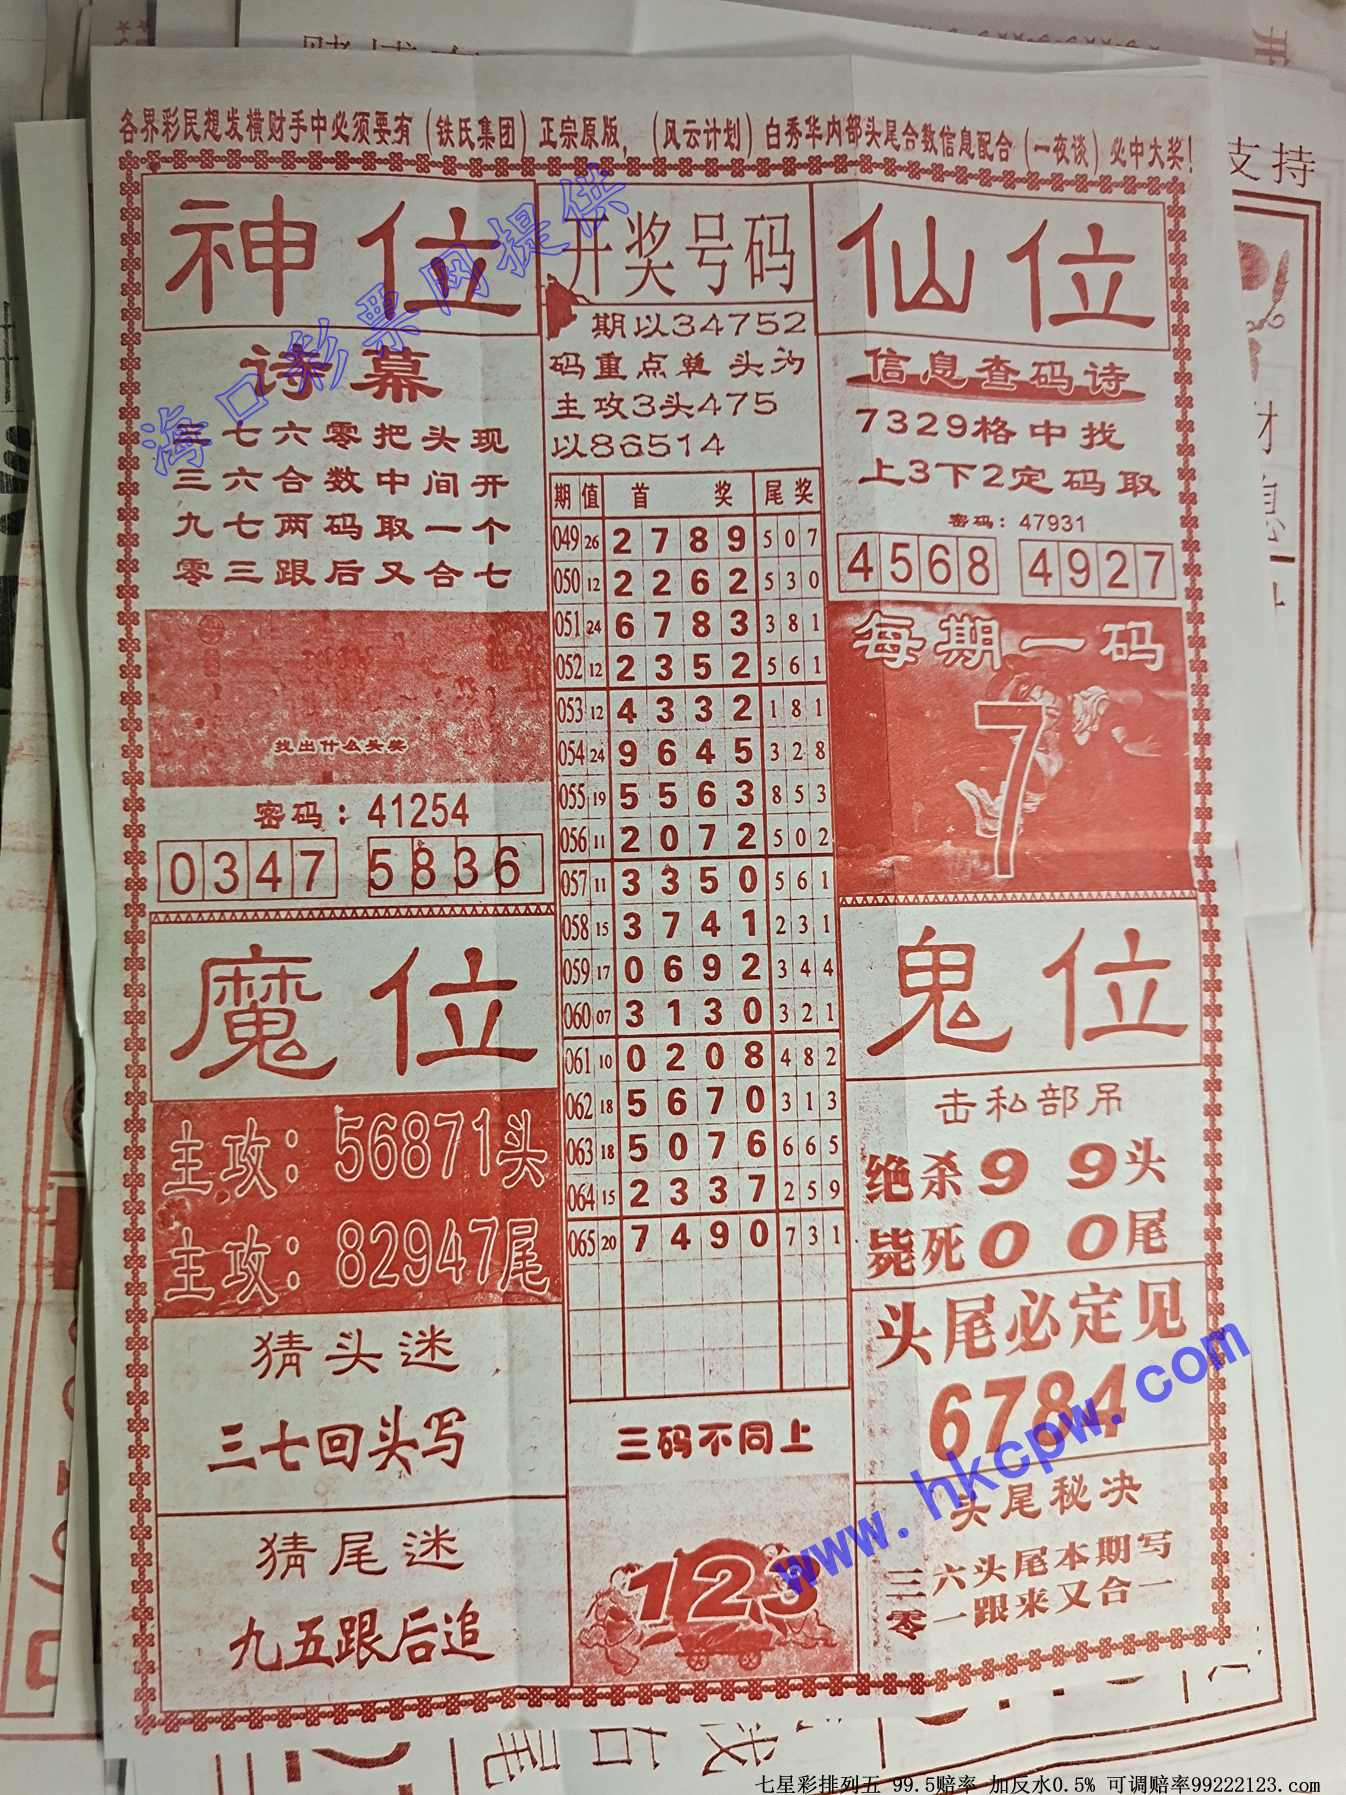 各界彩民想发横财手中必须要有（铁氏集团）正宗原版，（风云计划）白秀华内部头尾合数信息配合（一夜谈）必中大奖！
支持
神位
海口彩票网提供
诗幕
三七六零把头现
三六合数中间开
九七两码取一个
零三跟后又合七
找出什么头奖
密码：41254
0347 5836
魔位
主攻：56871头
主攻：82947尾
猜头迷
三七回头写
猜尾迷
九五跟后追
开奖号码
期以34752
码重点单 头为
主攻3头475
以86514
期 值 首 奖 尾奖
049 26 2 7 8 9 5 0 7
050 12 2 2 6 2 5 3 0
051 24 6 7 8 3 3 8 1
052 12 2 3 5 2 5 6 1
053 12 4 3 3 2 1 8 1
054 24 9 6 4 5 3 2 8
055 19 5 5 6 3 8 5 3
056 11 2 0 7 2 5 0 2
057 11 3 3 5 0 5 6 1
058 15 3 7 4 1 2 3 1
059 17 0 6 9 2 3 4 4
060 07 3 1 3 0 3 2 1
061 10 0 2 0 8 4 8 2
062 18 5 6 7 0 3 1 3
063 18 5 0 7 6 6 6 5
064 15 2 3 3 7 2 5 9
065 20 7 4 9 0 7 3 1
三码不同上
123
仙位
信息查码诗
7329格中找
上3下2定码取
密码：47931
4568 4927
每期一码
7
鬼位
击私部吊
绝杀9 9头
毙死0 0尾
头尾必定见
6784
www.hkcpw.com
头尾秘决
三六头尾本期写
零一跟来又合一
七星彩排列五 99.5赔率 加反水0.5% 可调赔率99222123.com